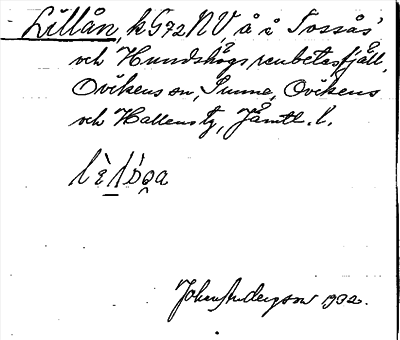 Lillån, kG72NV, å i Tossås'
och Hundshögs renbetesfjäll,
Ovikens sn, Sunne, Ovikens
och Hallens tg, Jämtl. l.
John Anderson 1932.